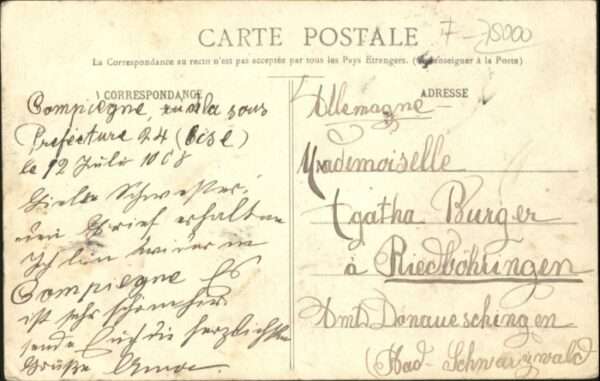 7 - 15000
CARTE POSTALE
La Correspondance au recto n'est pas acceptée par tous les Pays Etrangers. (Se renseigner à la Poste)
CORRESPONDANCE
Compiegne, rue de la sous
Prefecture 24 (Oise)
le 12 Julie 1908
Liebe Schwester!
den Brief erhalten
Ich bin wieder in
Compiegne Es
ist sehr schön hier
sende Euch die herzlichsten
Grüße
ADRESSE
Allemagne
Mademoiselle
Agatha Burger
à Riedböhringen
Amt Donaueschingen
(Bad-Schwarzwald